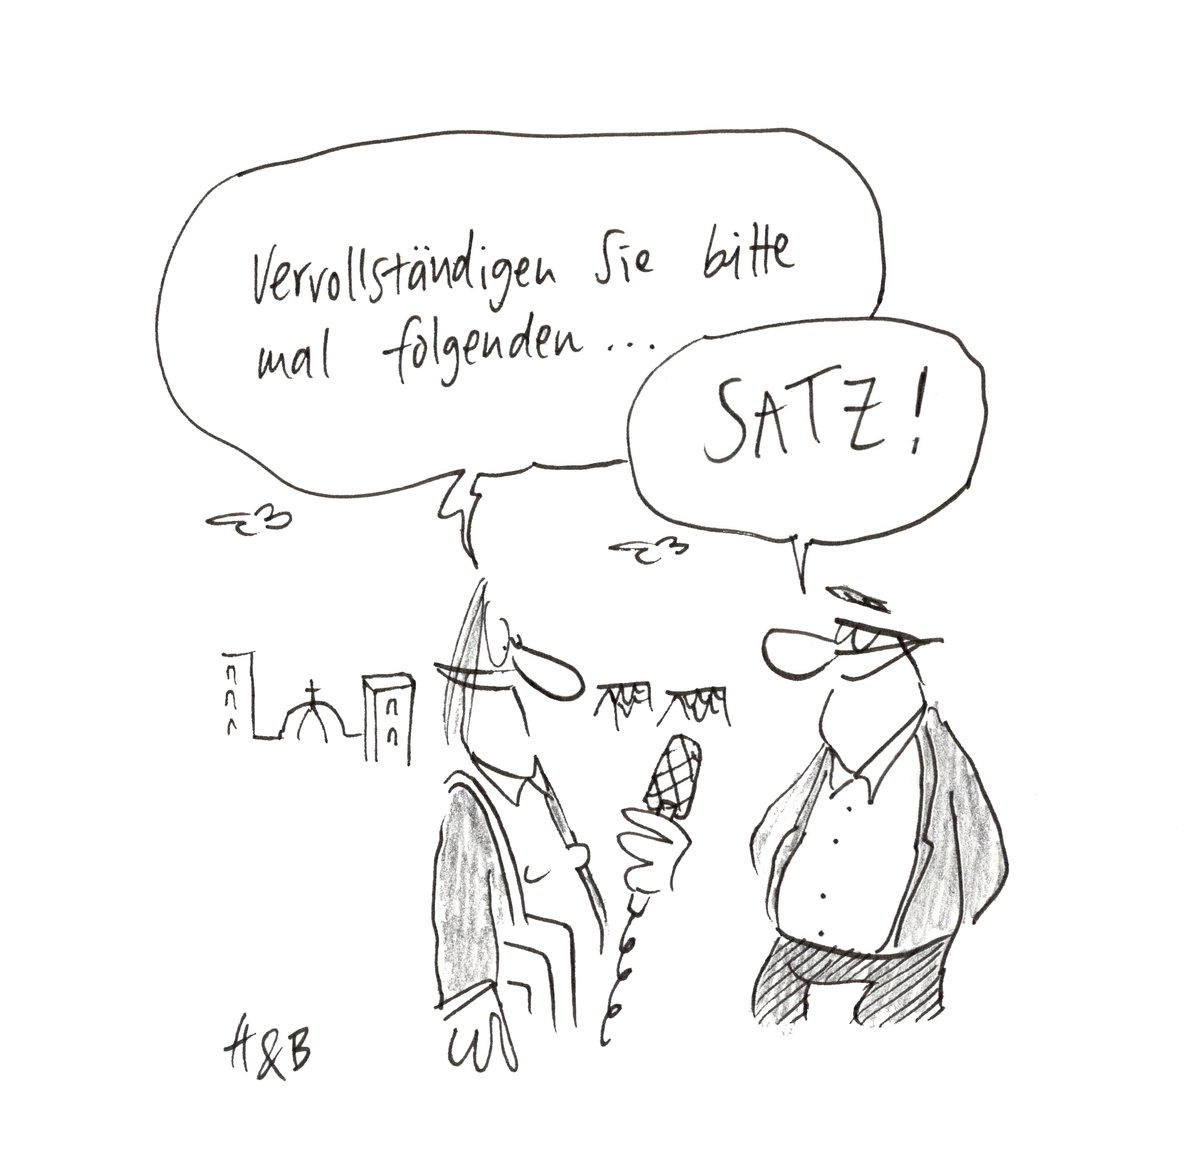 Vervollständigen Sie bitte
mal folgenden...
SATZ!
H&B